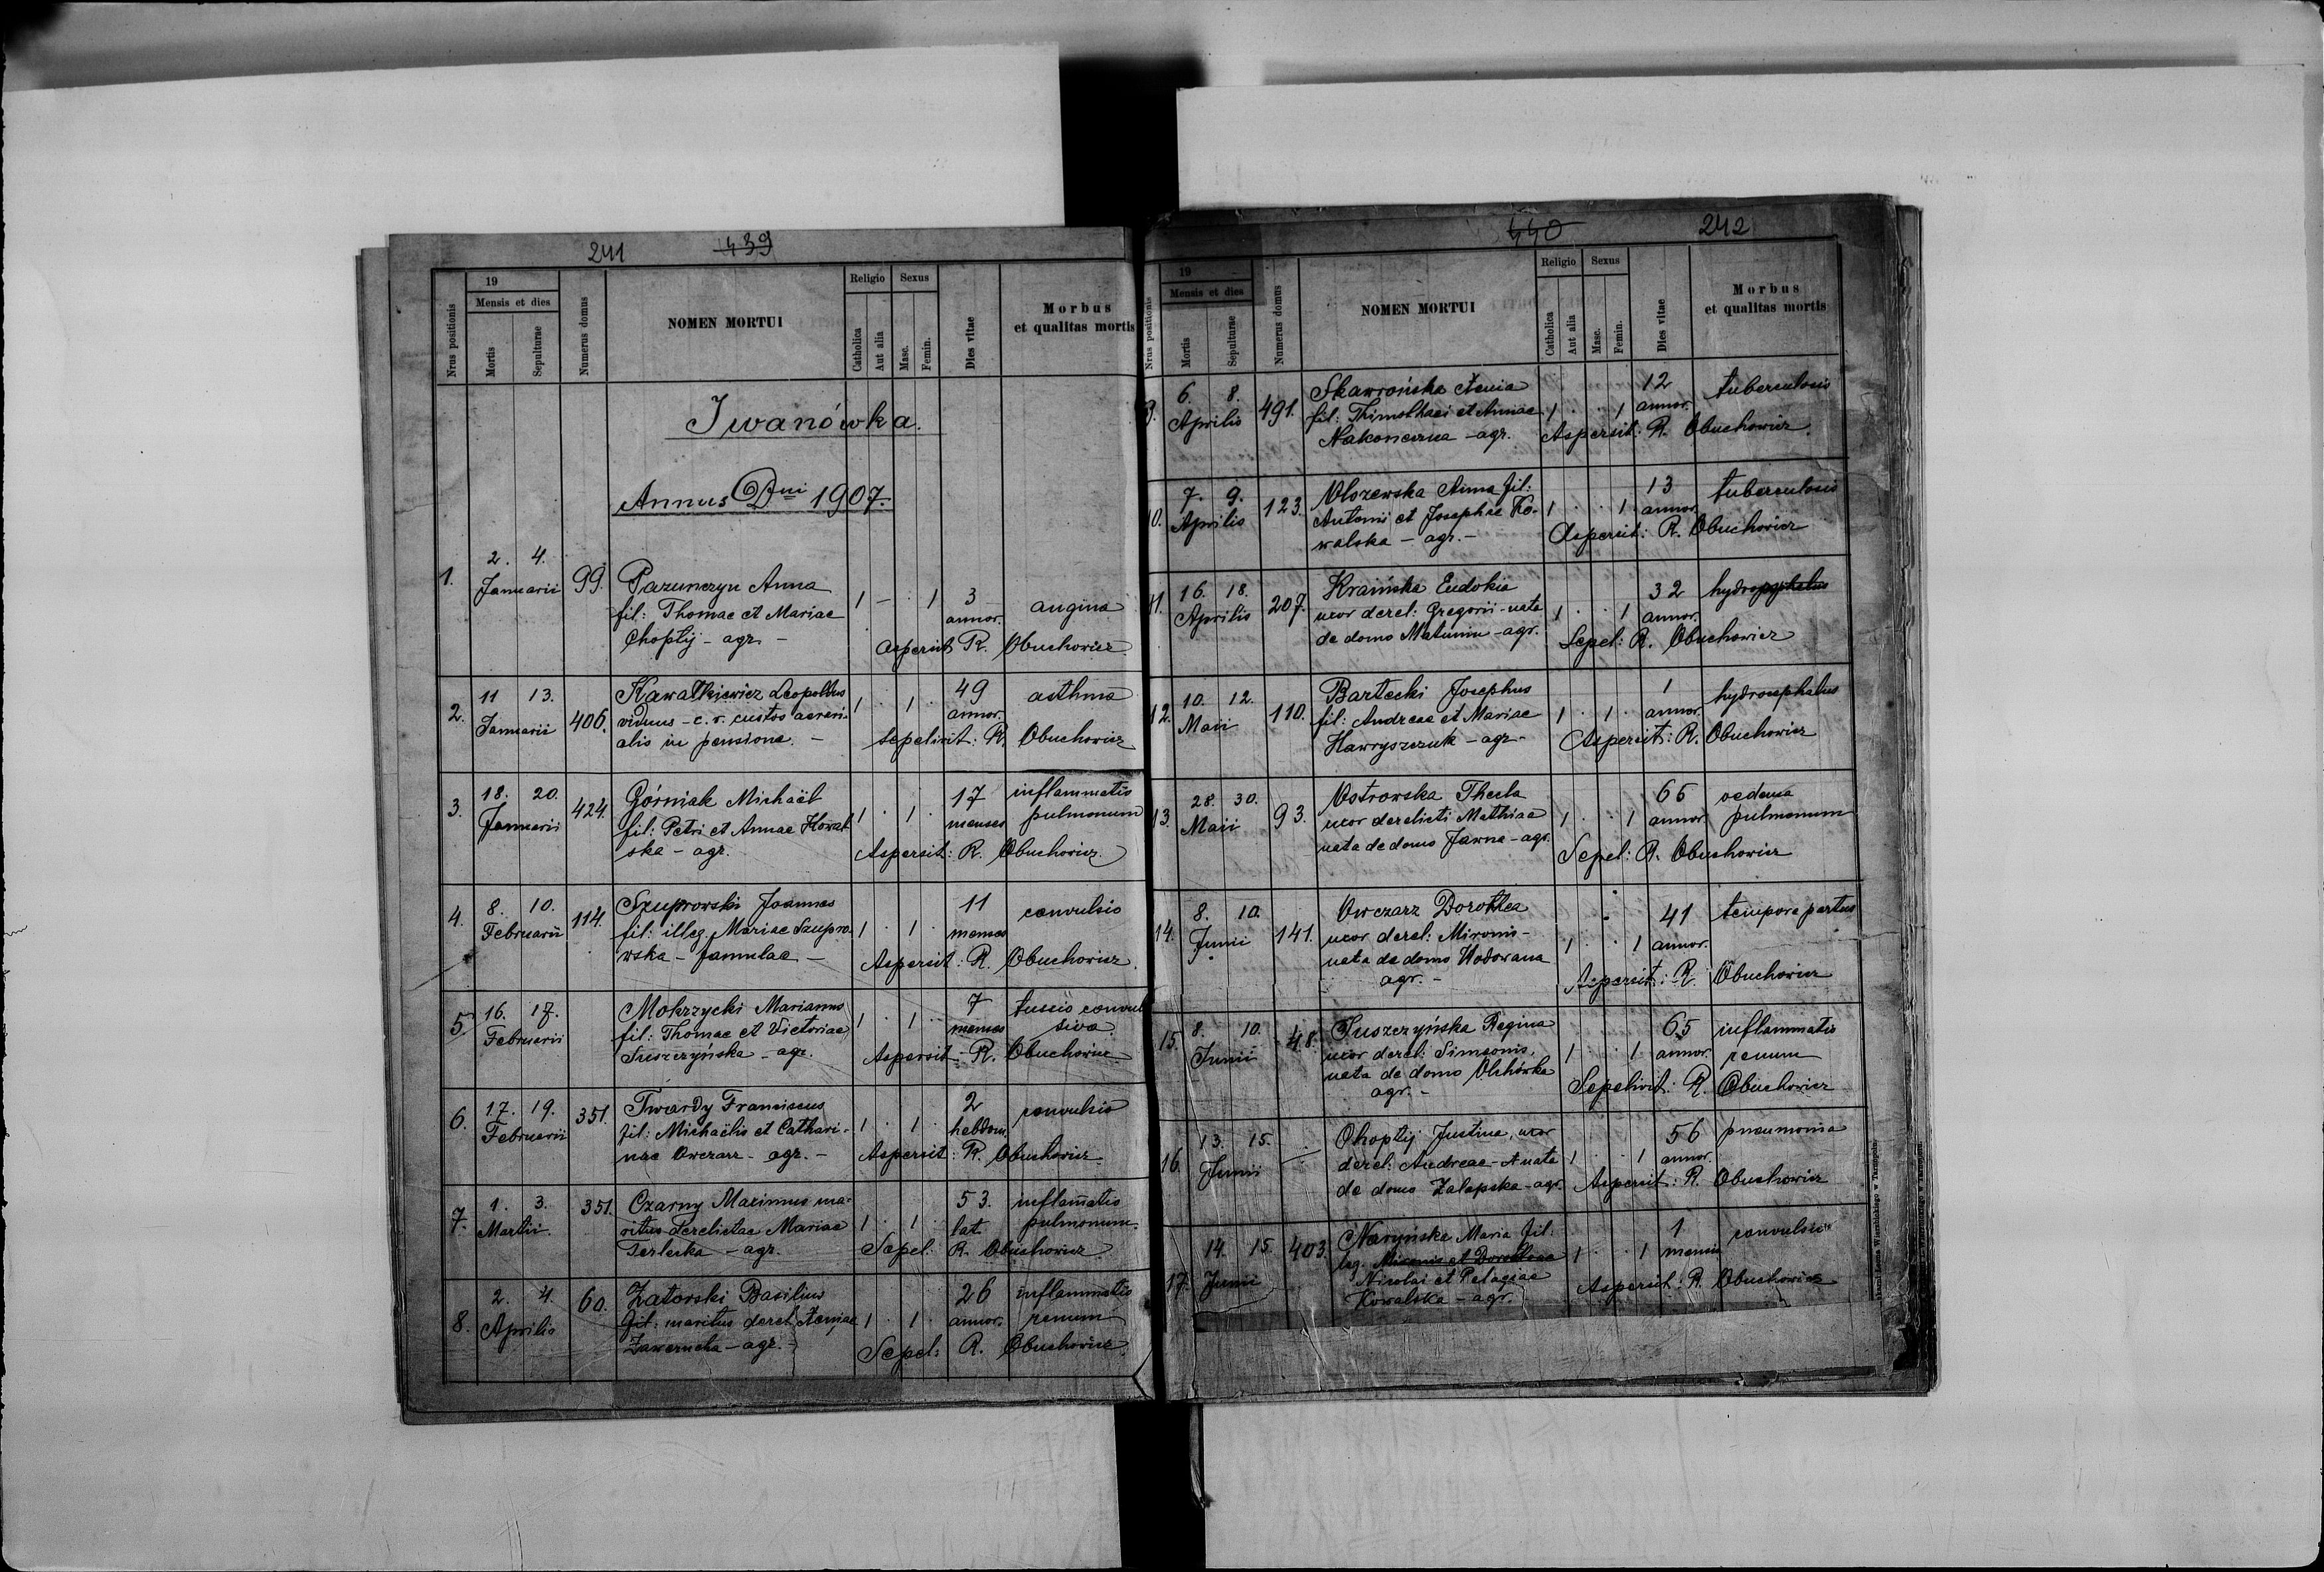 241 439
19
Religio Sexus
Nrus positionis
Mensis et dies
Mortis
Sepulturae
Numerus domus
NOMEN MORTUI
Catholica
Aut alia
Masc.
Femin.
Dies vitae
Morbus
et qualitas mortis
Iwanówka.
Annus Dni 1907.
1. 2. 4. Januarii 99. Pazunczyn Anna 1 – 1 3 annor. angina
fil: Thomae et Mariae
Choptij - agr. –
aspersit R. Obuchowicz
2. 11 13. Januarii 406. Kawałkiewicz Leopoldus 1 . 1 . 49 annor. asthma
viduus - c. r. custos aerari-
alis in pensione. –
sepelivit: R. Obuchowicz
3. 18. 20. Januarii 424. Górniak Michaël 1 . 1 . 17 menses inflammatio
fil: Petri et Annae Kowal pulmonum
ska - agr.
Aspersit: R. Obuchowicz
4. 8. 10. Februarii 114. Szuprowski Joannes 1 . 1 . 11 menses convulsio
fil: illeg. Mariae Szupro-
wska - famulae –
Aspersit: R. Obuchowicz
5. 16. 17. Februarii Mokrzycki Marianus 1 . 1 . 7 menses tussis convul
fil: Thomae et Victoriae siva
Suszczyńska - agr.
Aspersit - R. Obuchowicz
6. 17. 19. Februarii 351. Twardy Franciscus 1 . 1 . 2 hebdom. convulsio
fil: Michaëlis et Cathari-
nae Owczarz - agr. –
Aspersit: R. Obuchowicz
7. 1. 3. Martii 351. Czarny Maximus ma- 1 . 1 . 53. lat. inflammatio
ritus derelictae Mariae pulmonum
Terlecka - agr.
Sepel: R. Obuchowicz
8. 2. 4. Aprilis 60. Zatorski Basilius 1 . 1 . 26 annor. inflammatio
fil: maritus derel. Xeniae renum
Zawerucha - agr. -
Sepel: R. Obuchowicz
440 242
19
Religio Sexus
Nrus positionis
Mensis et dies
Mortis
Sepulturae
Numerus domus
NOMEN MORTUI
Catholica
Aut alia
Masc.
Femin.
Dies vitae
Morbus
et qualitas mortis
9. 6. 8. Aprilis 491. Skawrońska Xenia 1 . . 1 12 annor. tuberculosis
fil: Thimothaei et Annae
Nakoneczna - agr.
Aspersit: R. Obuchowicz
10. 7. 9. Aprilis 123. Olszewska Anna fil: 1 . . 1 13 annor. tuberculosis
Antonii et Josephae Ko-
walska - agr. -
Aspersit: R. Obuchowicz
11. 16. 18. Aprilis 207. Kraińska Eudokia 1 . . 1 32 annor.
uxor derel: Gregorii - nata
de domo Matunin - agr.
Sepel: R. Obuchowicz
12. 10. 12. Maii 110. Bartecki Josephus 1 . 1 . 1 annor. hydrocephalus
fil: Andreae et Mariae
Hawryszczuk - agr -
Aspersit: R. Obuchowicz
13. 28. 30. Maii 93. Ostrowska Thecla 1 . . 1 66 annor. oedema
uxor derelicti Mathiae pulmonum
nata de domo Jawna - agr.
Sepel: R. Obuchowicz
14. 8. 10. Junii 141. Owczarz Dorothea 1 . . 1 41 annor. tempore partus
uxor derel: Mironis -
nata de domo Hodowana
agr. -
Aspersit: R. Obuchowicz
15. 8. 10. Junii 48. Suszczyńska Regina 1 . . 1 65 annor. inflammatio
uxor derel: Simeonis, renum
nata de domo Olchówka
agr. -
Sepelivit: R. Obuchowicz
16. 13. 15. Junii Choptij Justina, uxor 1 . . 1 56 annor. pneumonia
derel: Andreae - nata
de domo Zalepska - agr.
Aspersit: R. Obuchowicz
17. 14. 15. Junii 403. Naryńska Maria fil: 1 . . 1 1 mensis convulsio
leg. Mironis et Dorotheae
Nicolai et Pelagiae
Kowalska - agr.
Aspersit: R. Obuchowicz